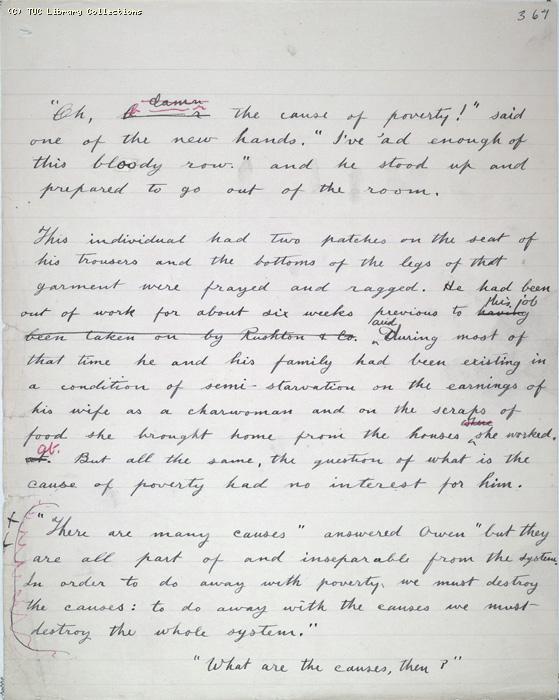 (C) TUC Library Collections
367
damn
"Oh, the cause of poverty!" said
one of the new hands. "I've 'ad enough of
this bloody row." and he stood up and
prepared to go out of the room.
This individual had two patches on the seat of
his trousers and the bottoms of the legs of that
garment were frayed and ragged. He had been
this job
out of work for about six weeks previous to having
and
been taken on by Rushton & Co. During most of
that time he and his family had been existing in
a condition of semi-starvation on the earnings of
his wife as a charwoman and on the scraps of
where
food she brought home from the houses she worked.
at. But all the same, the question of what is the
cause of poverty had no interest for him.
"There are many causes" answered Owen "but they
are all part of and inseparable from the system
In order to do away with poverty, we must destroy
the causes: to do away with the causes we must
destroy the whole system."
"What are the causes, then?"